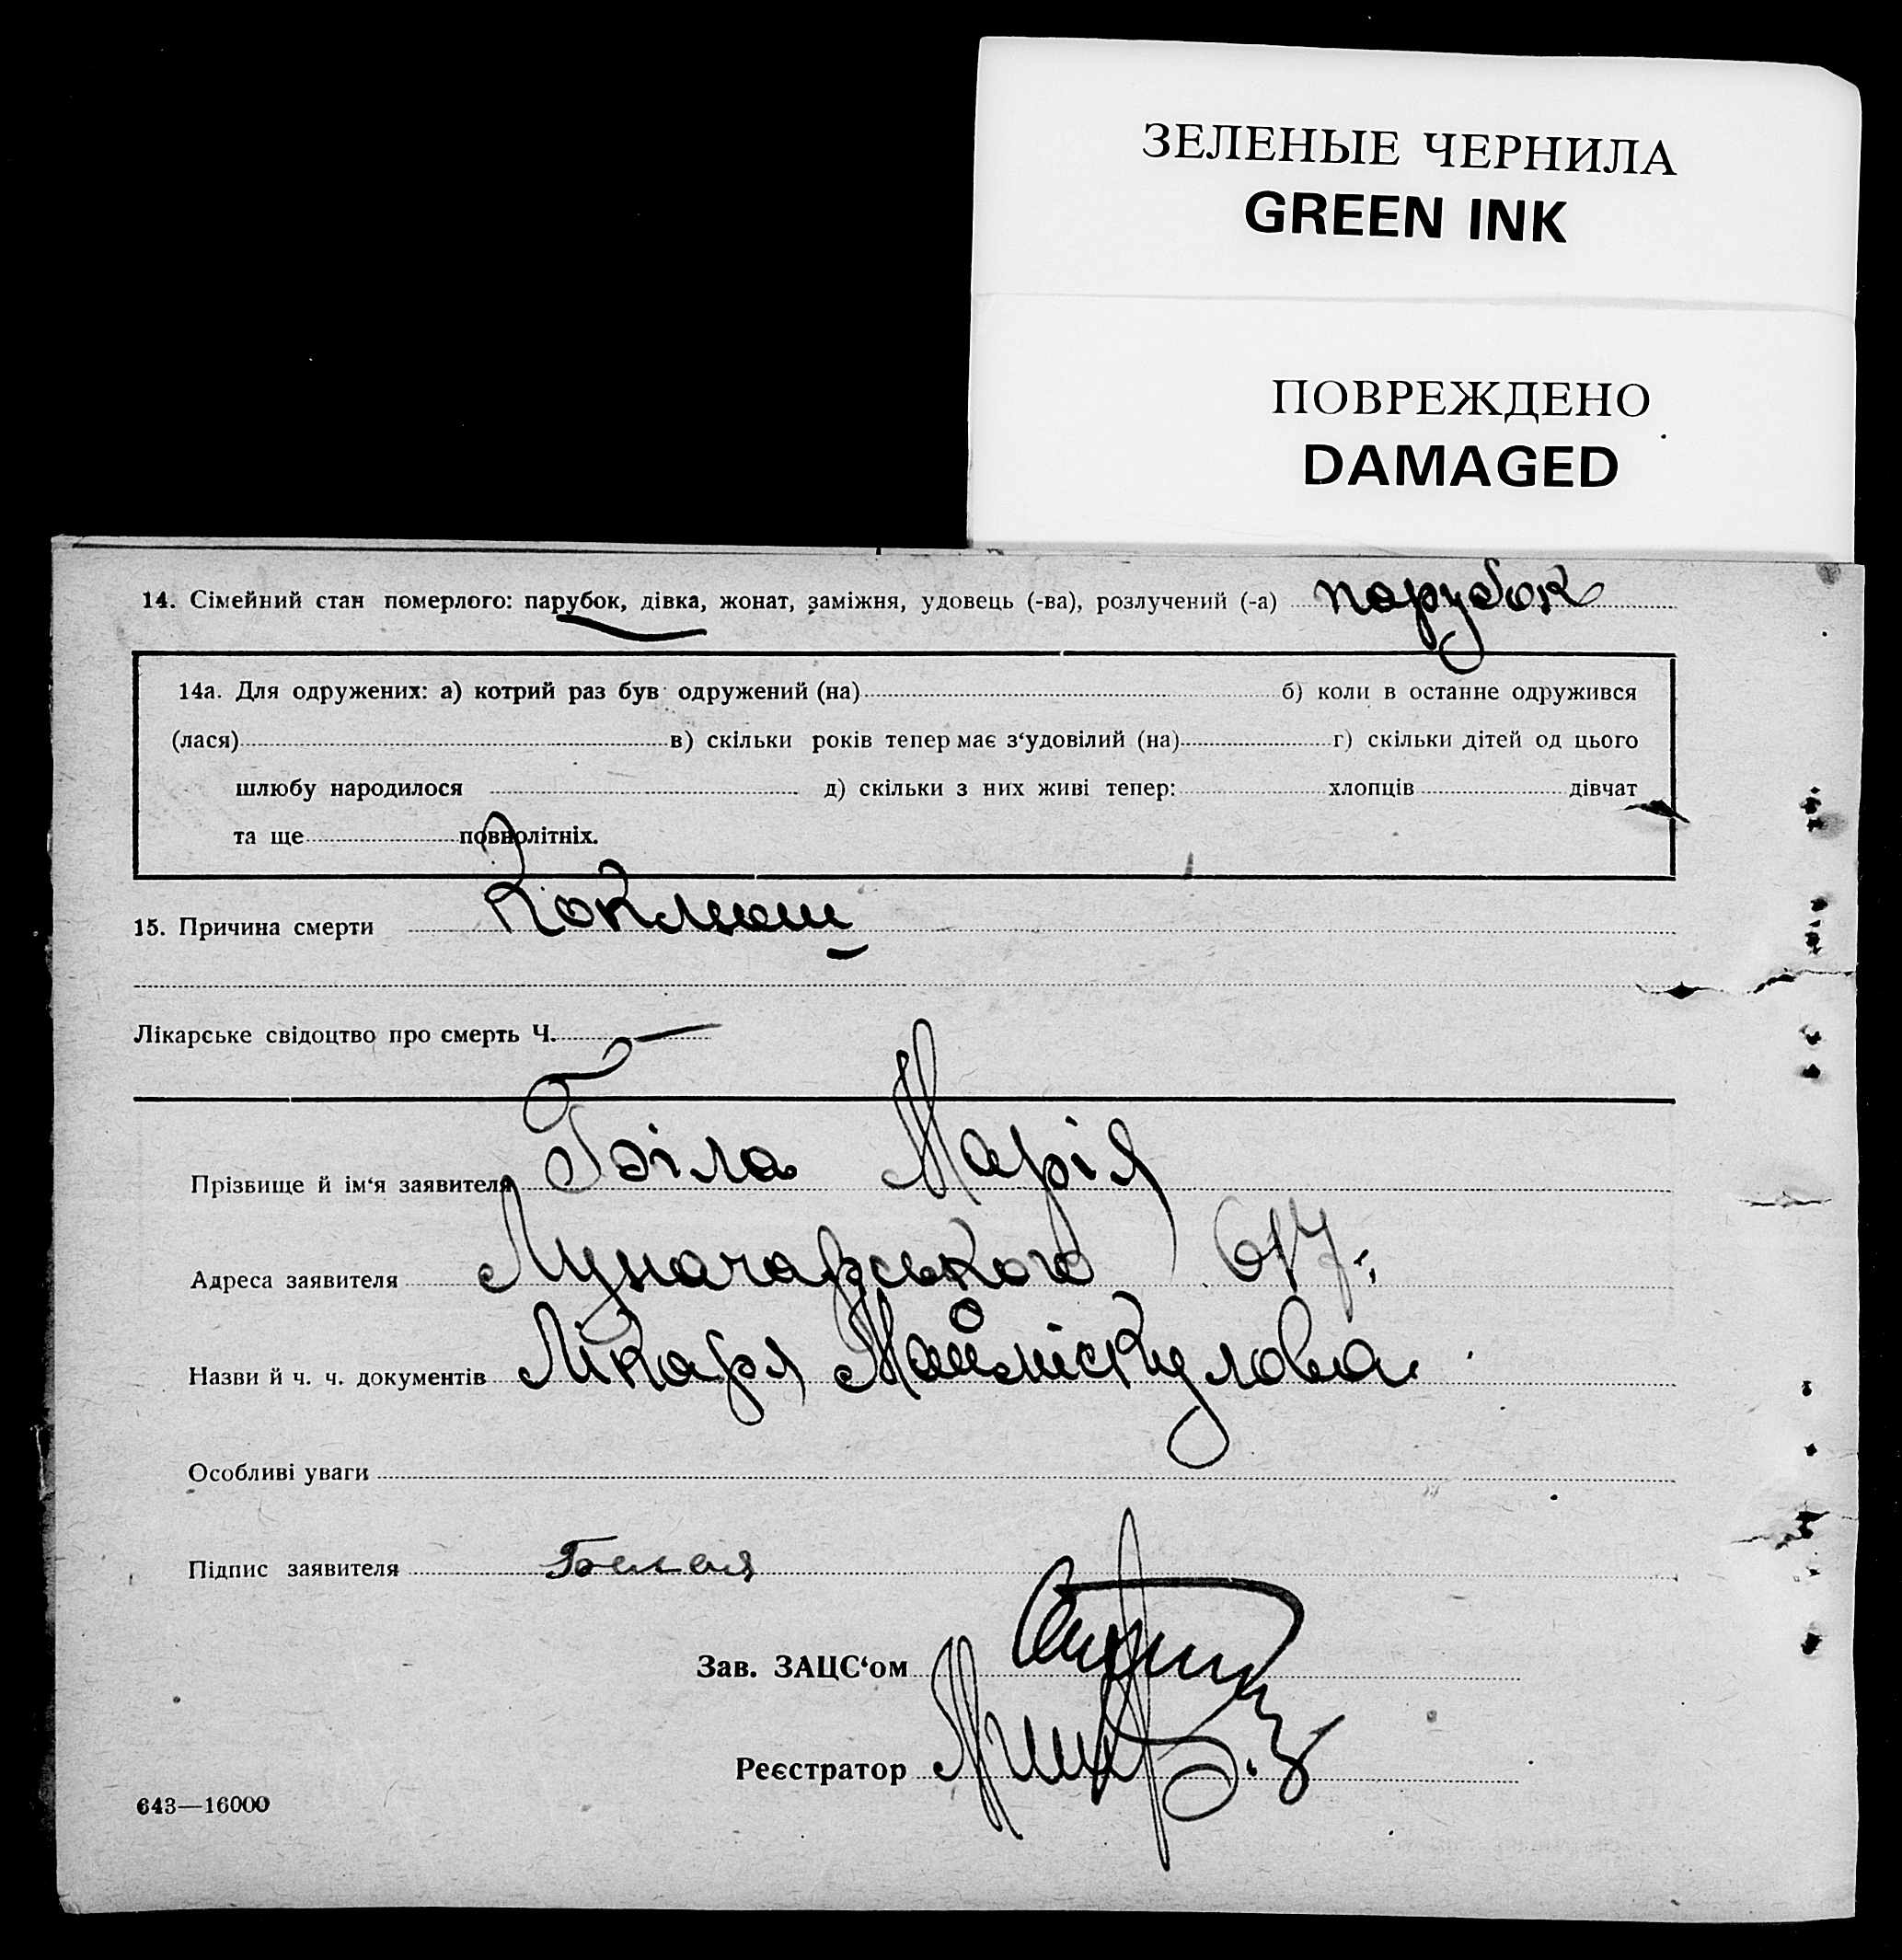 ЗЕЛЕНЫЕ ЧЕРНИЛА
GREEN INK
ПОВРЕЖДЕНО
DAMAGED
14. Сімейний стан померлого: парубок, дівка, жонат, заміжня, удовець (-ва), розлучений (-а) парубок
14а. Для одружених: а) котрий раз був одружений (на) б) коли в останне одружився
(лася) в) скільки років тепер має з‘удовілий (на) г) скільки дітей од цього
шлюбу народилося д) скільки з них живі тепер: хлопців дівчат
та ще повнолітніх.
15. Причина смерти Коклюш
Лікарське свідоцтво про смерть Ч. —
Прізвище й ім‘я заявителя Біла Марія
Адреса заявителя Луначарського
Назви й ч. ч. документів Лікаря
Особливі уваги
Підпис заявителя Белая
Зав. ЗАЦС‘ом
Реєстратор
643—16000